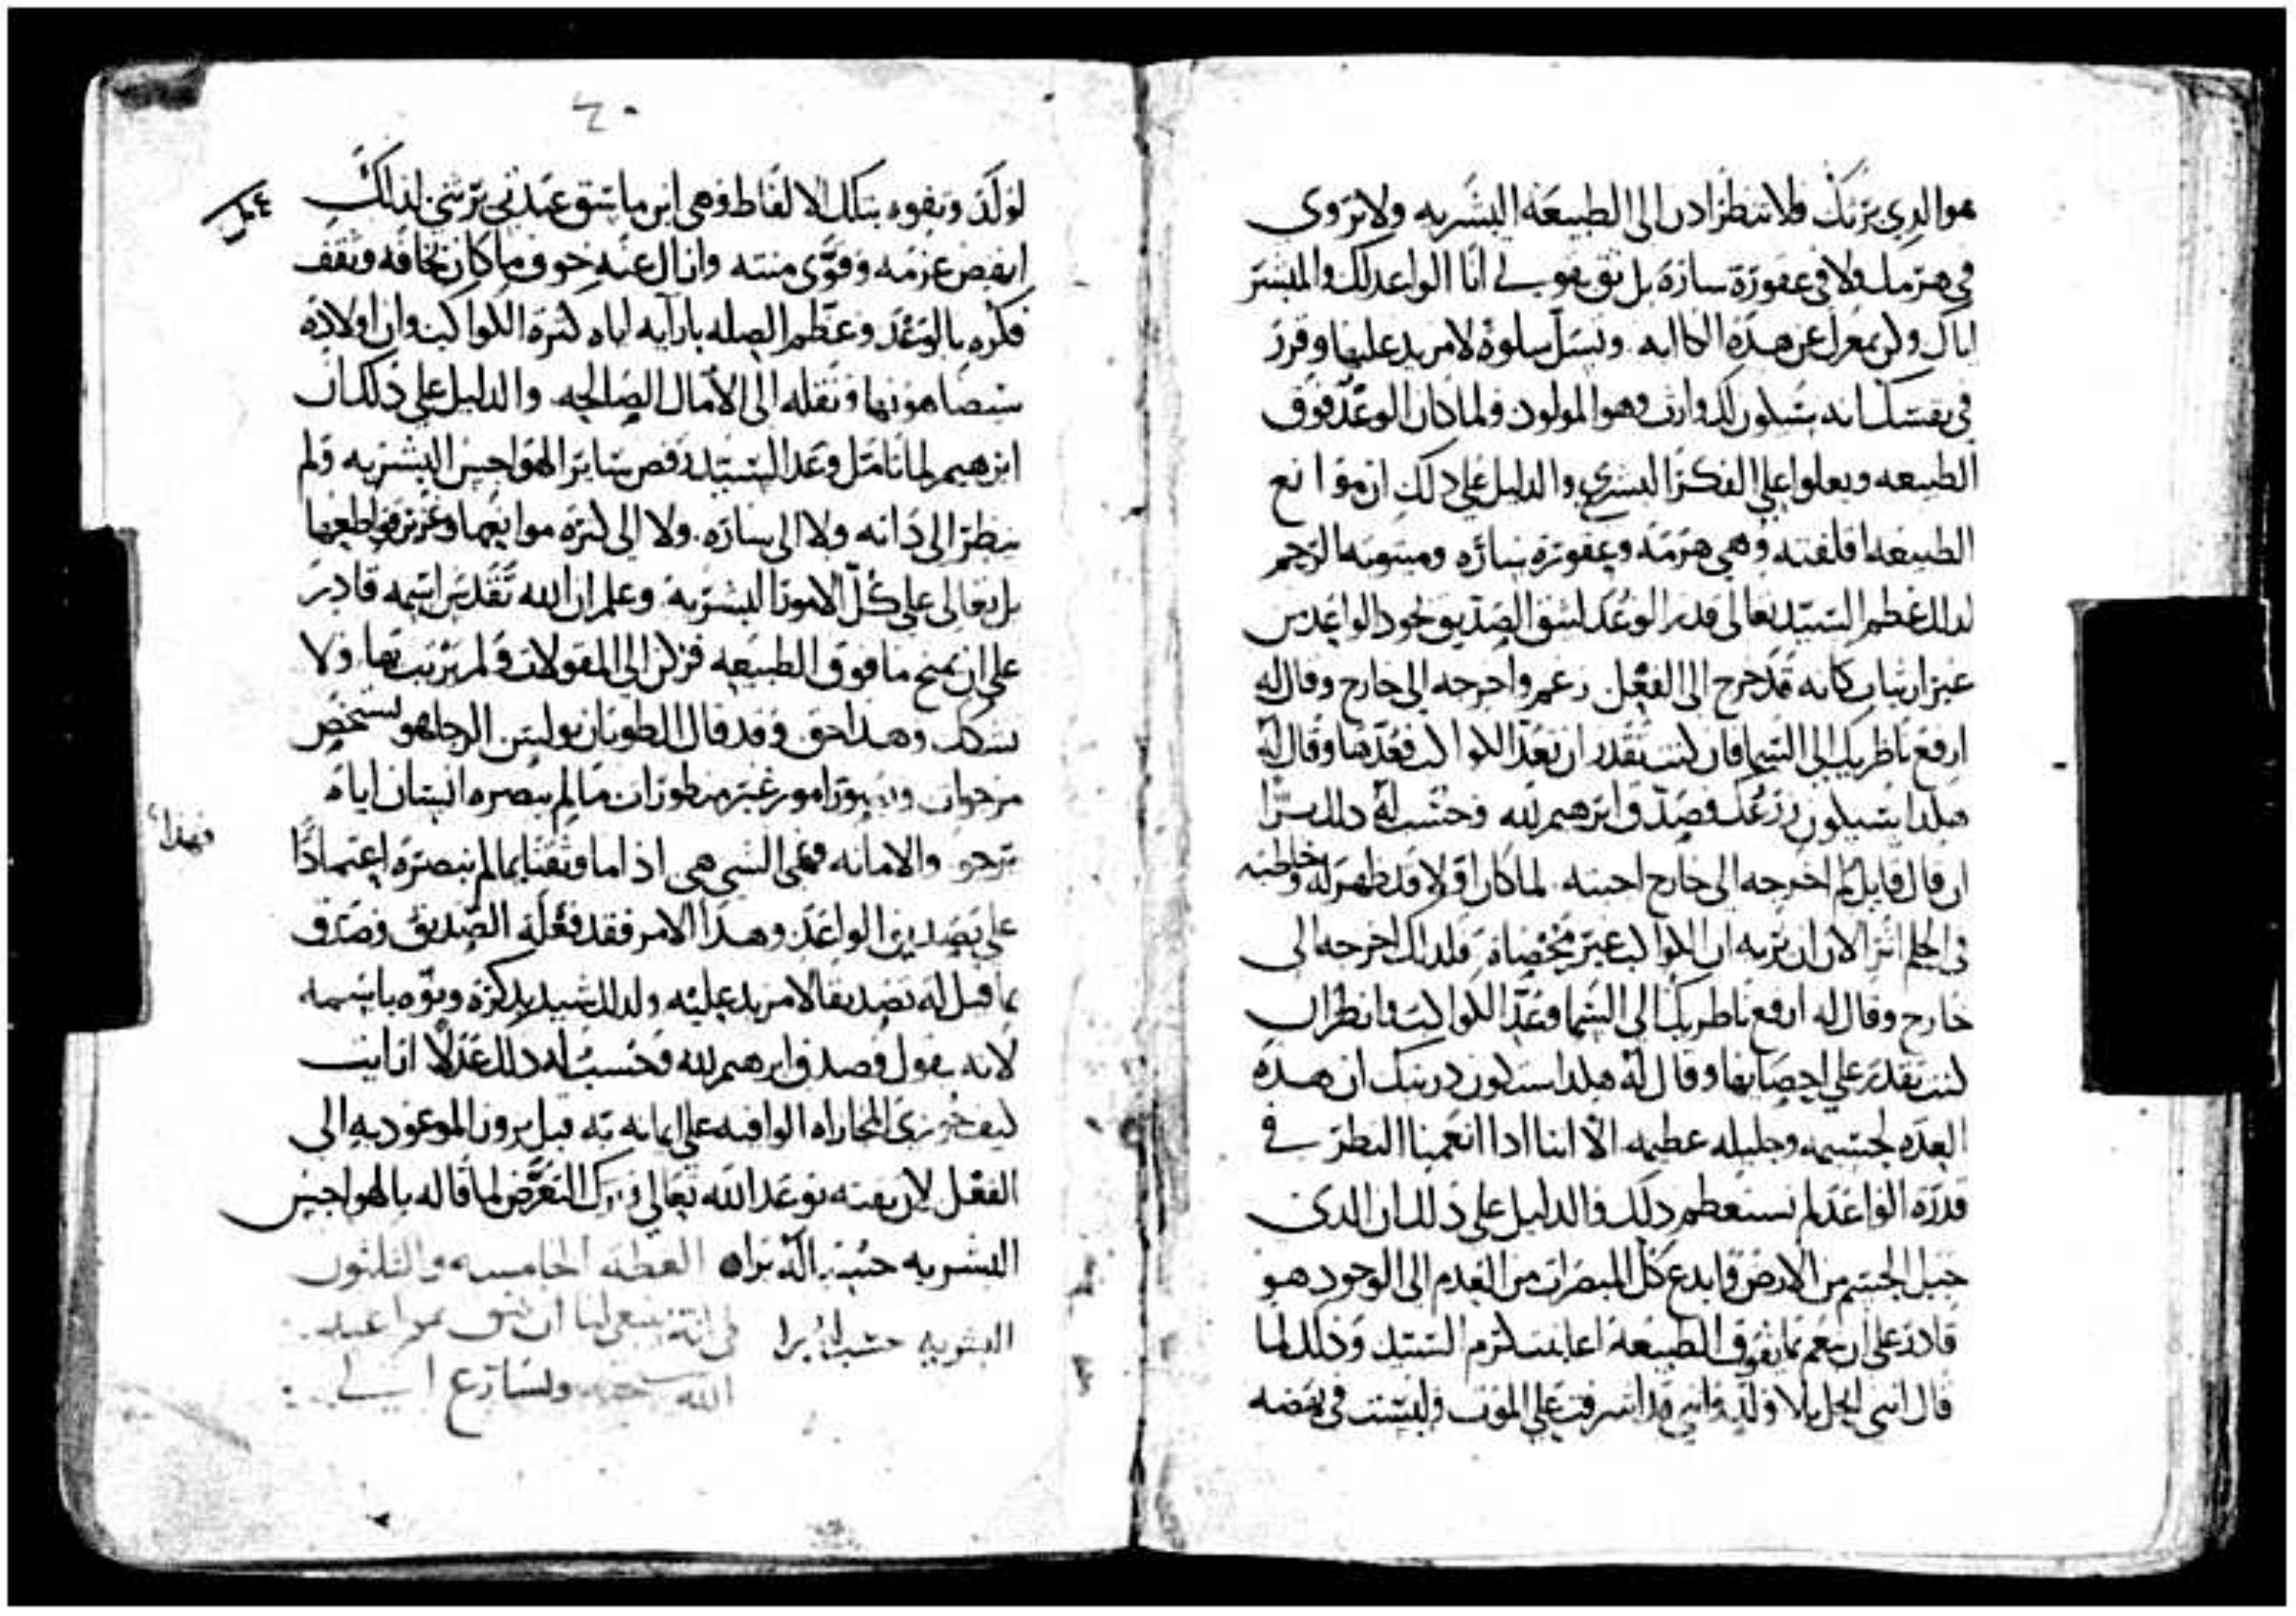 هو الدي يرتك فلا تنظر ادن الى الطبيعة البشريه ولا تروي
في هرمك ولا في عقورة سارة بل ثق بقولي انا الواعد لك والمبشر
اياك ولن بمعزل عن هده الكابه وتسل سلوة لا مزيد عليها وقرر
في نفسك انه سيكون لك وارث وهو المولود ولما كان الوعد فوق
الطبيعه ويعلوا على الفكر البشري والدليل على دلك ان موانع
الطبيعه اقلقته وهي هرمه وعقورة ساره وميتوتة الرحم
لدلك عظم السيد تعالى قدر الوعد لسق الصديق بجود الواعد من
غير ارتياب كانه قد خرج الى الفعل زعم واخرجه الى خارج وقال له
ارفع ناظريك الى السما فان كنت تقدر ان تعد الكواكب فعدها وقال له
هكدا سيكون زرعك وصدق ابرهيم لله وحسب له دلك برا
ان قال قايل لم اخرجه الى خارج اجبته لما كان اولا قد ظهر له وخاطبه
في الحلم اثر الان ان يريه ان الكواكب غير محصاة فلدلك اخرجه الى
خارج وقال له ارفع ناظريك الى السما وعد الكواكب وانظر ان
كنت تقدر على احصايها وقال له هكدا سيكون دريتك ان هده
العده لجسيمه وجليله عظيمه الا اننا ادا انعمنا النظر في
قدرة الواعد لم نستعظم دلك والدليل على دلك ان الدي
جبل الجسم من الارض وابدع كل المبصرات من العدم الى الوجود هو
قادر على ان ينعم بما يفوق الطبيعة اعاينت كرم السيد ودلك لما
قال انني انحل بلا ولد واني قد اشرفت على الموت وليست في نهضه
٤٠
لولد وتفوه بتلك الالفاظ وهي ابن ماشق عبدتي يرثني لدلك
انهض عزمه وقوى منته وازال عنه خوف ما كان يخافه وثقف
فكره بالوعد وعظم الصله بارآيه اياه كثرة الكواكب وان اولاده
سيضاهونها ونقله الى الآمال الصالحه والدليل على دلك ان
ابرهيم لما تامل وعد السيد رفض ساير الهواجس البشريه ولم
ينظر الى داته ولا الى ساره ولا الى كثرة موانعهما وغزر قواطعهما
بل تعالى على كل الامور البشرية وعلم ان الله تقدس اسمه قادر
على ان يمنح ما فوق الطبيعه فركن الى المقولات ولم يرتب بها ولا
شكك وهدا حق وقد قال الطوبان بولس الرجا هو تشخيص
مرجوات وتبوت امور غير منظوران ما لم يبصره انسان اياه
يرجو والامانه فهى الشي هي اذ اما وثقنا بما لم نبصره اعتمادا
فهذا
على تصديق الواعد وهدا الامر فقد فعله الصديق وصدق
بما قيل له تصديقا لا مزيد عليه ولدلك شيد بدكره ونوه باسمه
لانه يقول وصدق ابرهيم لله وحسب له دلك عدلا اعاينت
كيف جوزي المجازاه الوافيه على ايمانه به قبل بروز الموعود به الى
الفعل لان يقينه بوعد الله تعالى وترك التعرض لما قاله بالهواجس
البشريه حسب له برا ه العظة الخامسه والثلثون
البشريه حسب له برا في انه ينبغي لنا ان نثق بمواعيد
الله ونسارع الى